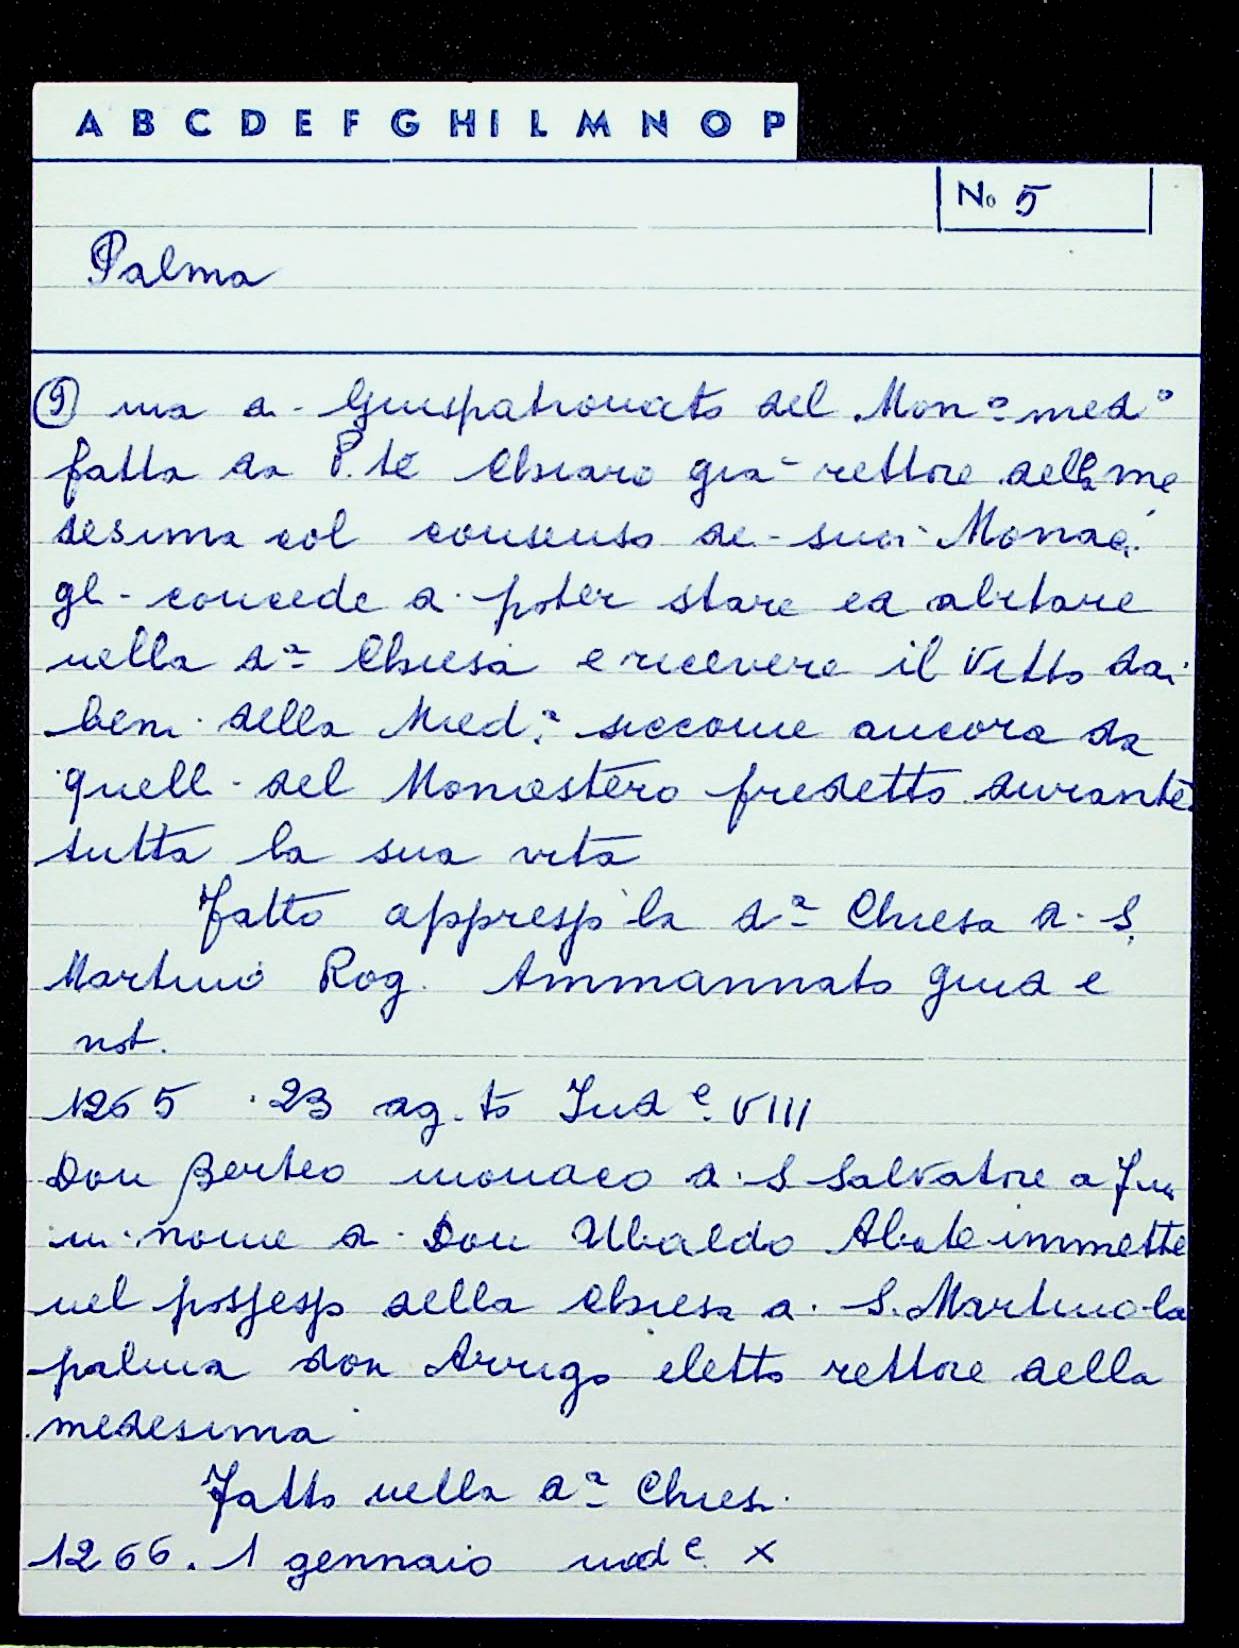 A B C D E F G H I L M N O P
No 5
Palma
⑤ ma di Giuspatronato del Mon.º med.º
fatta da P.te Chiaro già rettore della me
desima col consenso de suoi Monaci
gli concede di poter stare ed abitare
nella d.ª Chiesa e ricevere il vitto dai
beni della Med.ª siccome ancora da
quelli del Monastero predetto durante
tutta la sua vita
Fatto appresso la d.ª Chiesa di S.
Martino Rog. Ammannato giud e
not.
1265 . 23 ag.to Ind.e VIII
Don Berteo monaco di S Salvatore a
in nome di Don Ubaldo Abate immette
nel possesso della chiesa di S. Martino la
palma don Arrigo eletto rettore della
medesima
Fatto nella d.ª Chiesa.
1266. 1 gennaio ind.e X